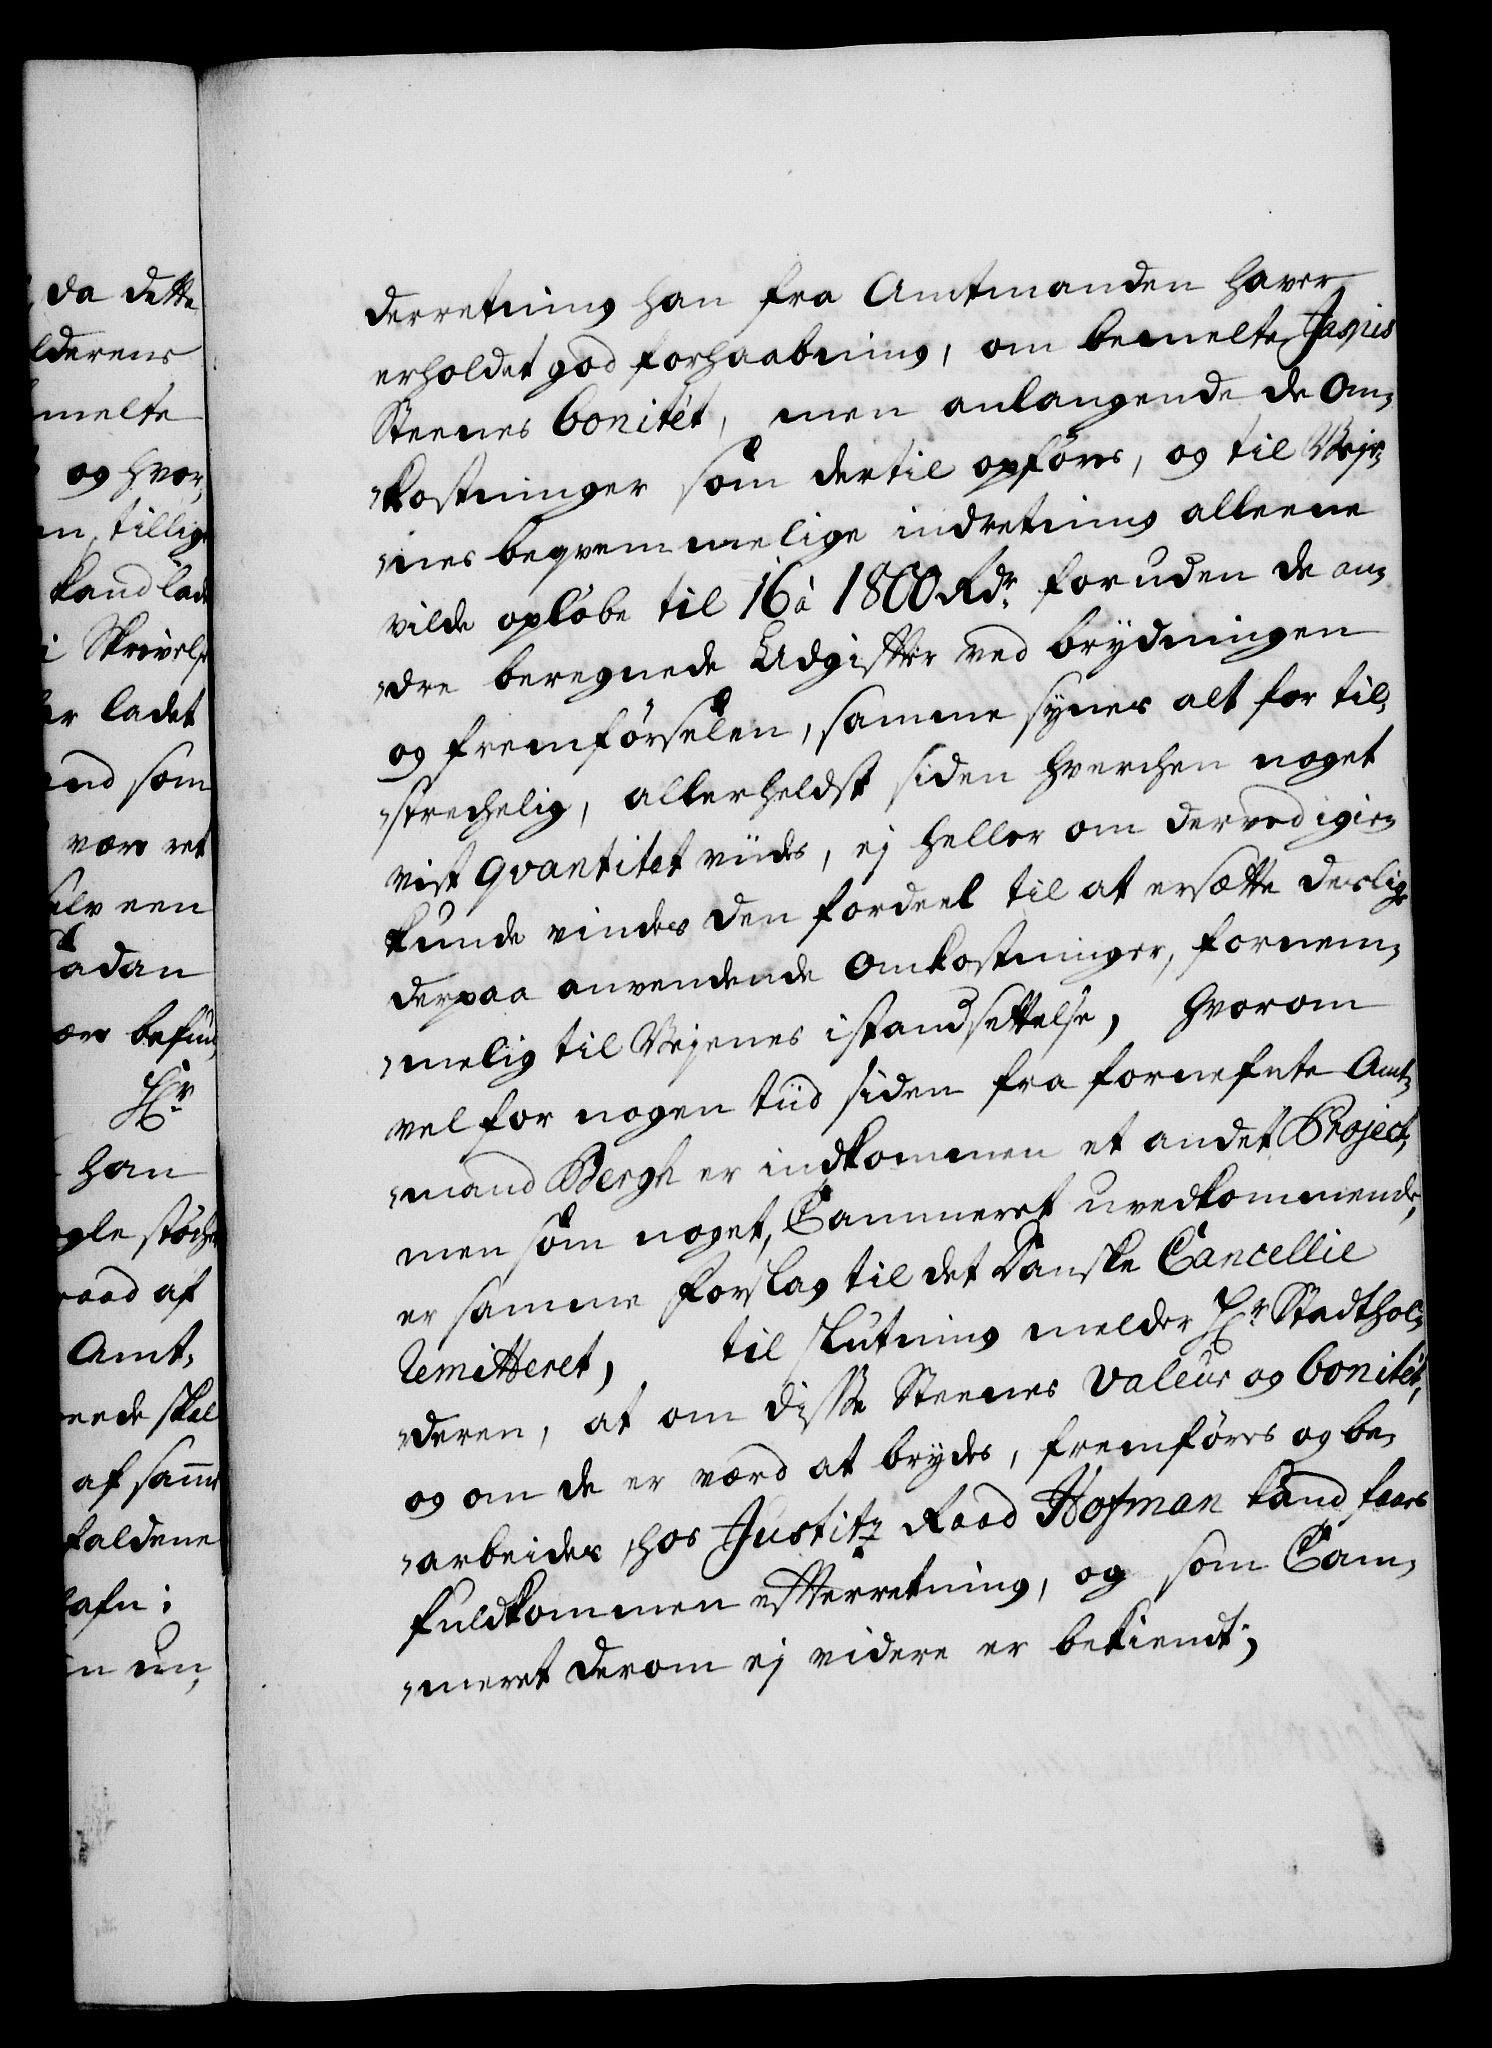 da dette
lderens
melte
og hvor,
en, tillige
kand lade
i Skrivelse
er ladet
and som
være ret
selv een
saadan
ære befun,
Hr
han
ogle støcher
raad af
Amt,
eende skal
af samme
kaldene
hafn:
en un,
derretning han fra Amtmanden haver
erholdet god forhaabning, om bemelte Jaspis
Steenes bonitét, men anlangende de Om,
„kostninger som dertil opføres, og til Veje,
„nes beqvemmelige indretning alleene
vilde opløbe til 16 à 1800 Rdr. foruden de an,
„dre beregnede Udgifter ved brydningen
og fremførselen, samme synes alt for til,
„strechelig, allerheldst siden hverchen noget
vist qvantitet viides, ej heller om derved igien
kunde vindes den fordeel til at ersætte deslige
derpaa anvendende Omkostninger, fornem,
„melig til Vejenes istandsettelse, hvorom
vel for nogen tiid siden fra fornefnte Amt,
„mand Bergh er indkommen et andet Project,
men som noget, Cammeret uvedkommende,
er samme forslag til det Danske Cancellie
remitteret, til slutning melder Hr Stadthol,
„deren, at om disse Steenes valeur og bonitét,
og om de er værd at brydes, fremføres og be,
„arbeides, hos Justitz Raad Hofman kand faaes
fuldkommen efterretning, og som Cam,
„meret derom ej videre er bekiendt;